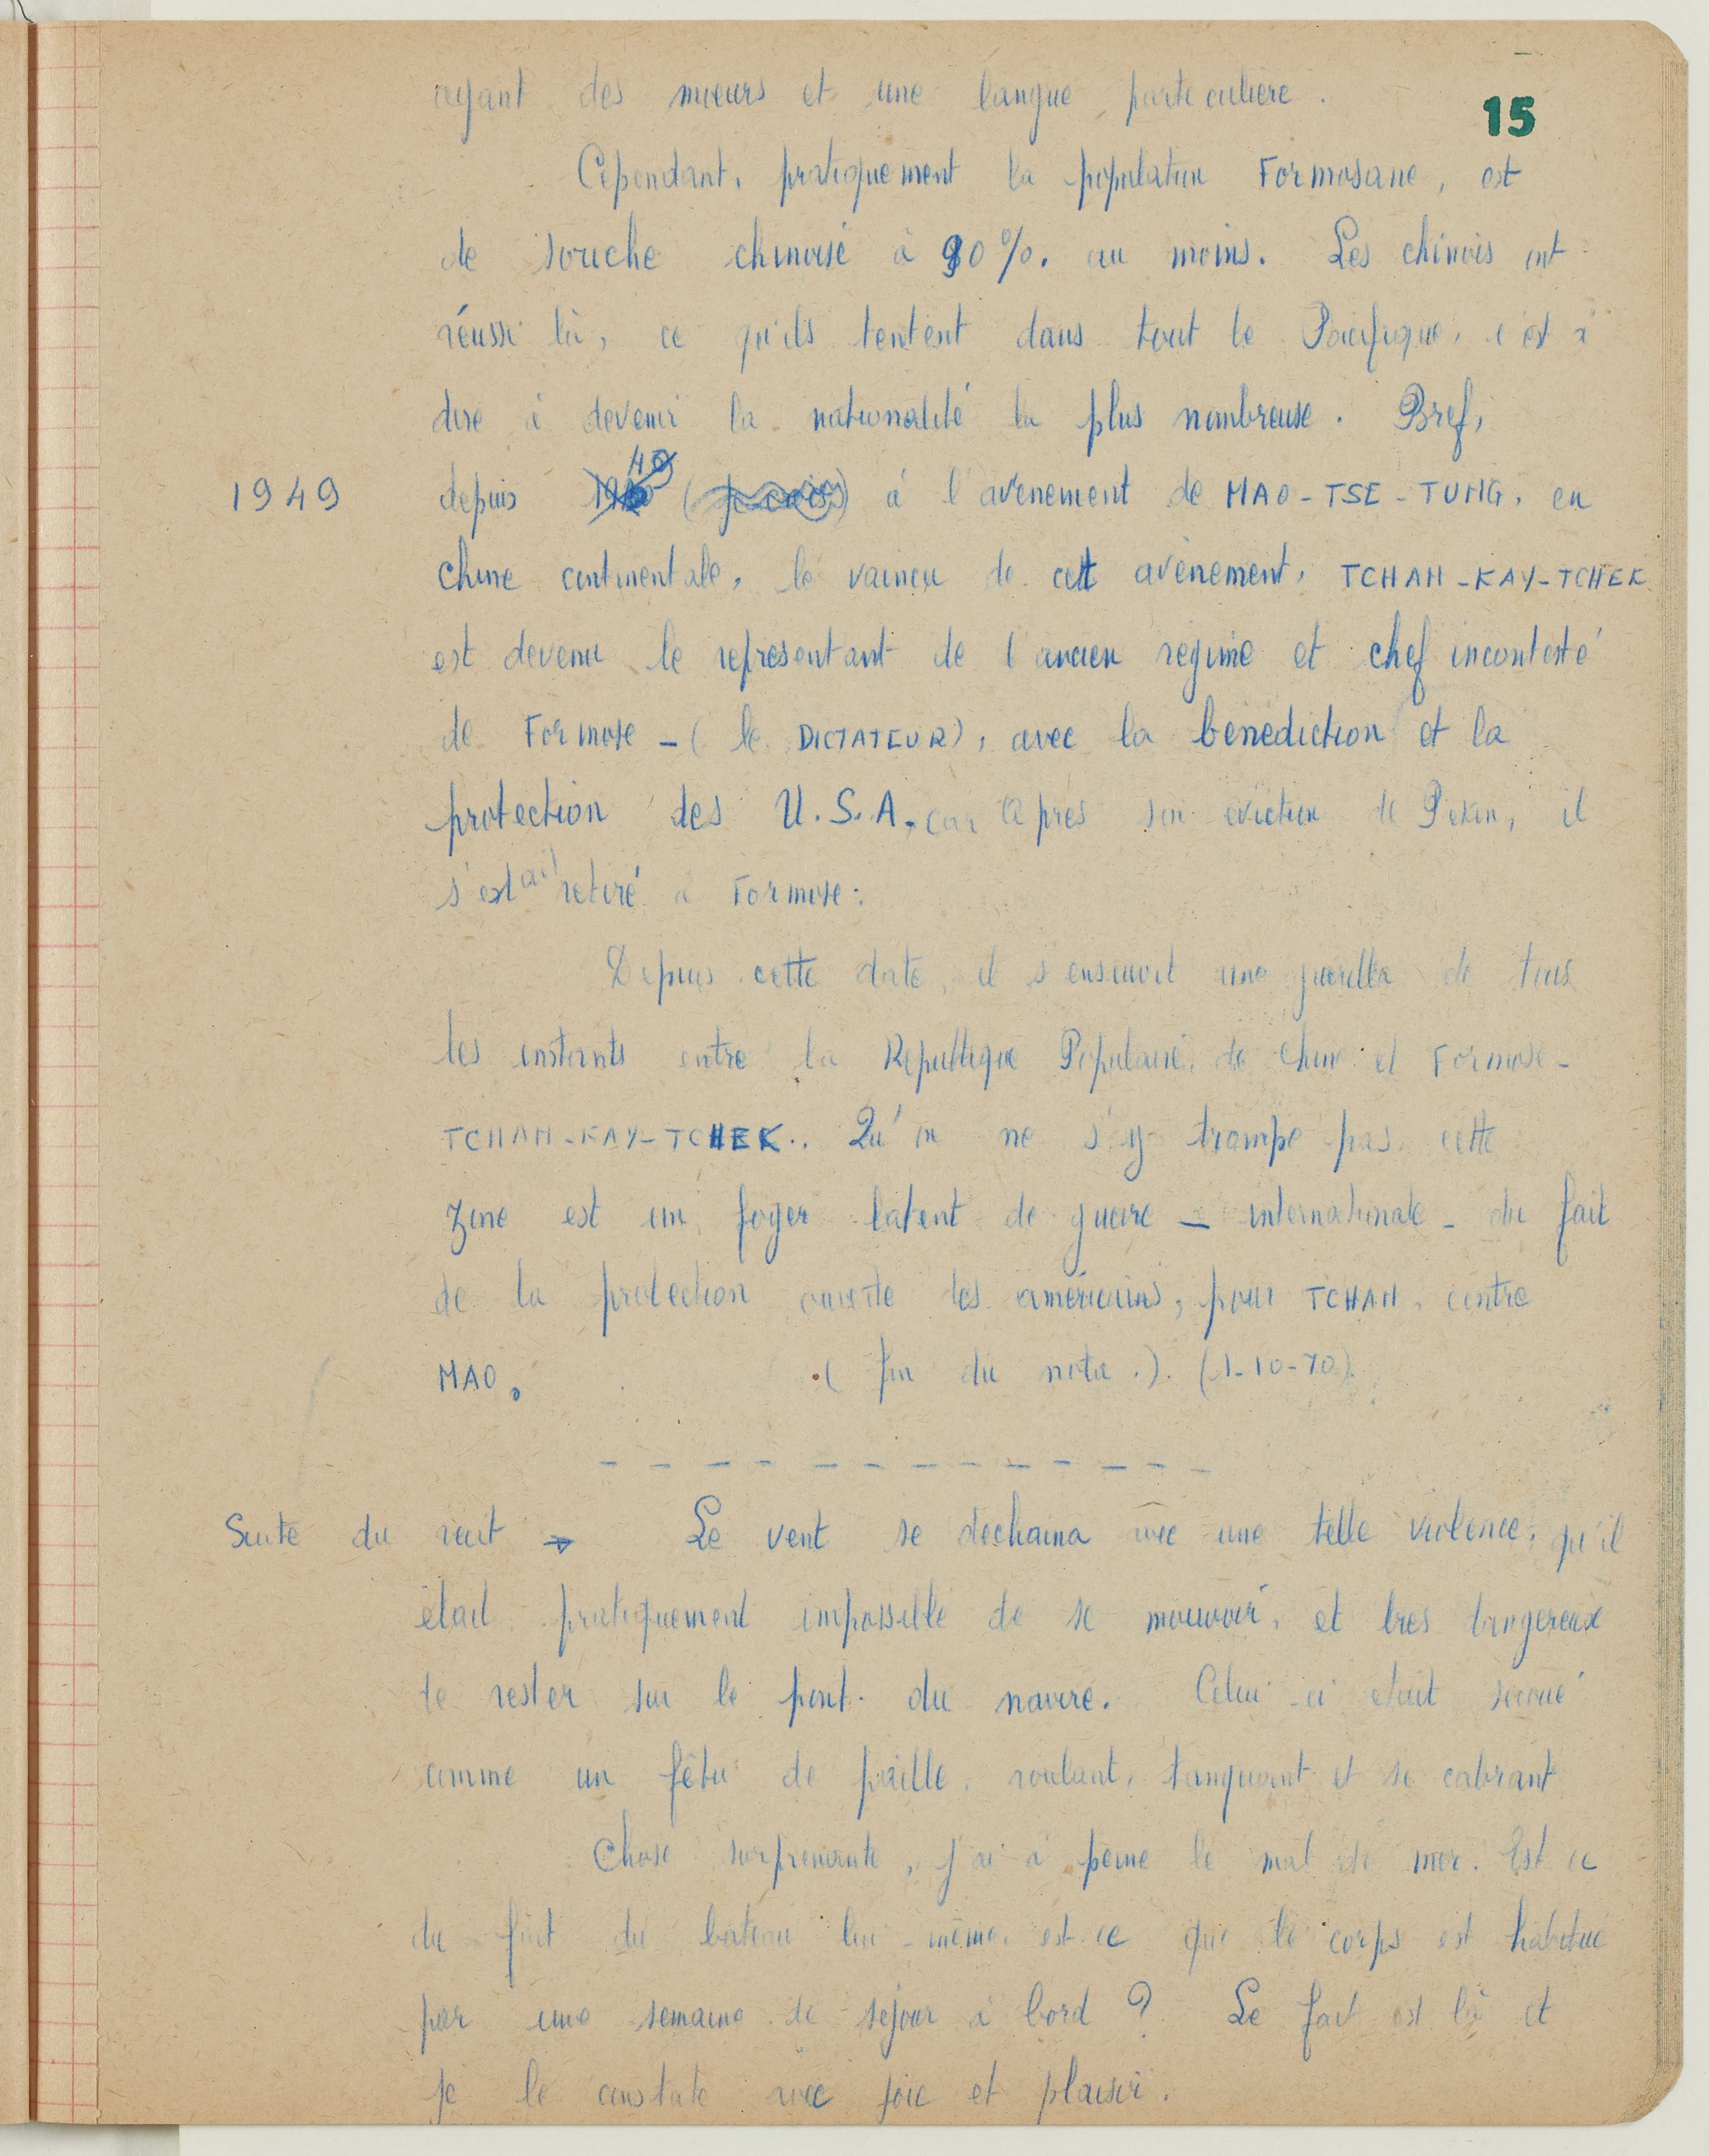 ayant des mœurs et une langue particulière.
15
Cependant, pratiquement la population Formosane, est
de souche chinoise à 90%. au moins. Les chinois ont
réussi là, ce qu'ils tentent dans tout le Pacifique, c'est à
dire à devenir la nationalité la plus nombreuse. Bref,
1949 depuis à l'avènement de MAO-TSE-TUNG, en
chine continentale, le vaincu de cett avènement, TCHAN-KAY-TCHEK
est devenu le représentant de l'ancien régime et chef incontesté
de Formose - (le DICTATEUR), avec la bénédiction et la
protection des U.S.A. car après son éviction de Pekin, il
s'était retiré à Formose.
Depuis cette date, il s'ensuivit une guerilla de tous
les instants entre la République Populaire de chine et Formose-
TCHAN-KAY-TCHEK. Qu'on ne s'y trompe pas, cette
zone est un foyer latent de guerre - internationale - du fait
de la protection ouverte des américains, pour TCHAN, contre
MAO. (fin du nota.). (1-10-70).
Suite du récit → Le vent se dechaina avec une telle violence, qu'il
était pratiquement impossible de se mouvoir, et très dangereux
de rester sur le pont du navire. Celui-ci était secoué
comme un fêtu de paille, roulant, tanguant et se cabrant
Chose surprenante, j'ai à peine le mal de mer. Est ce
du fait du bateau lui-même, est-ce que le corps est habitué
par une semaine de séjour à bord ? Le fait est là et
je le constate avec joie et plaisir.